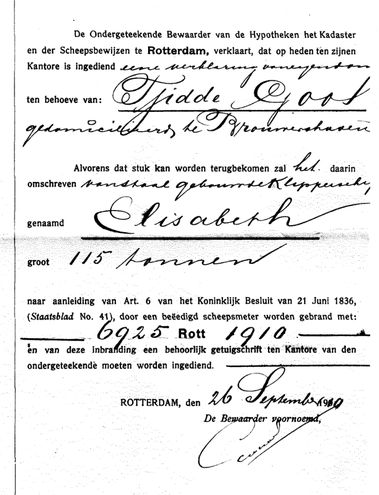 De Ondergeteekende Bewaarder van de Hypotheken het Kadaster
en der Scheepsbewijzen te Rotterdam, verklaart, dat op heden ten zijnen
Kantore is ingediend eene verklaring van eigendom
ten behoeve van: Tjidde Goot
gedomicilieerd te Brouwershaven
Alvorens dat stuk kan worden terugbekomen zal het daarin
omschreven van staal gebouwde Klipperschip
genaamd Elisabeth
groot 115 tonnen
naar aanleiding van Art. 6 van het Koninklijk Besluit van 21 Juni 1836,
(Staatsblad No. 41), door een beëedigd scheepsmeter worden gebrand met:
6925 Rott 1910
en van deze inbranding een behoorlijk getuigschrift ten Kantore van den
ondergeteekende moeten worden ingediend.
ROTTERDAM, den 26 September 1910
De Bewaarder voornoemd,